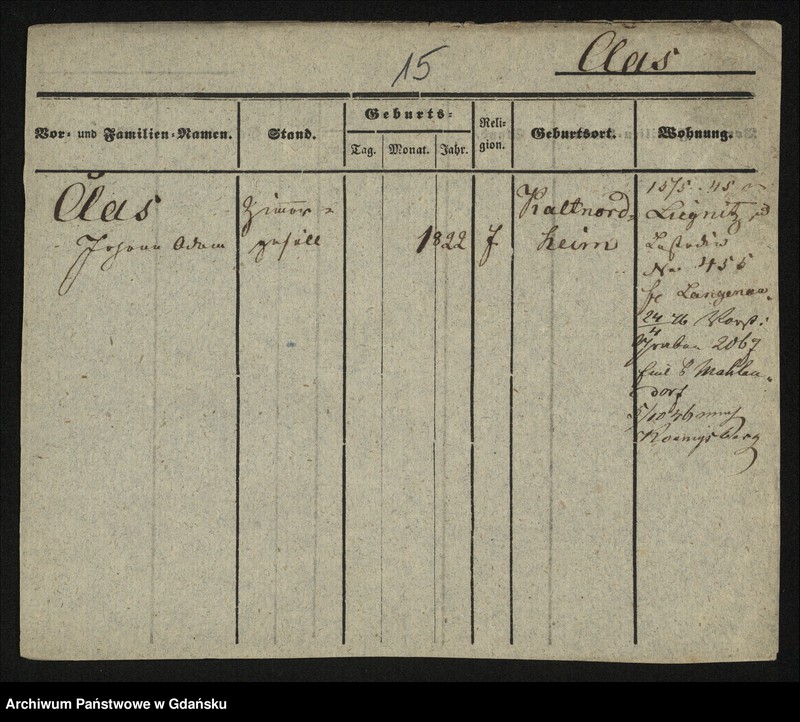 15
Clas
Vor- und Familien-Namen.
Stand.
Geburts-
Tag.
Monat.
Jahr.
Reli-
gion.
Geburtsort.
Wohnung.
Clas
Johann Adam
Zimmer-
gesell
1822
Kaltnord-
heim
15/5. 45
Liegnitz
Lastadie
No 455
Langenau
24/4 46 Vorst:
Graben 2067
Mahlen-
dorf
5/10 46 nach
Koenigsberg
Archiwum Państwowe w Gdańsku